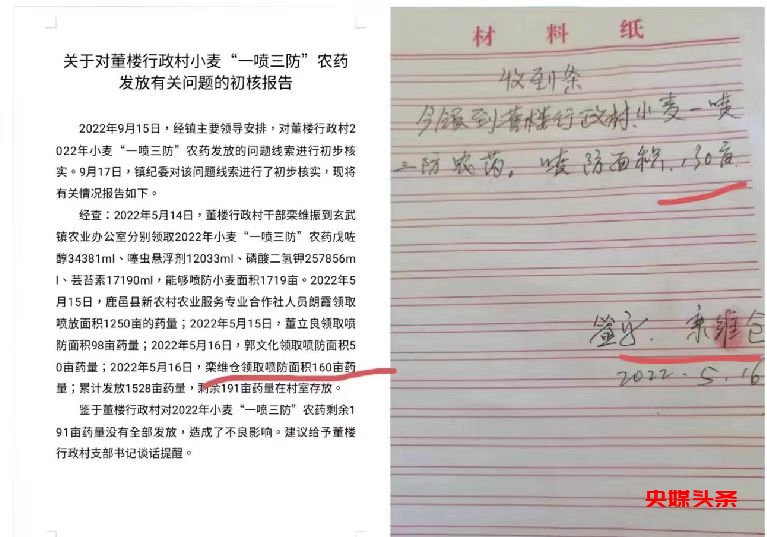 关于对董楼行政村小麦“一喷三防”农药
发放有关问题的初核报告
2022年9月15日，经镇主要领导安排，对董楼行政村2
022年小麦“一喷三防”农药发放的问题线索进行初步核
实。9月17日，镇纪委对该问题线索进行了初步核实，现将
有关情况报告如下。
经查：2022年5月14日，董楼行政村干部栾维振到玄武
镇农业办公室分别领取2022年小麦“一喷三防”农药戊咗
醇34381ml、噻虫悬浮剂12033ml、磷酸二氢钾257856m
l、芸苔素17190ml，能够喷防小麦面积1719亩。2022年5
月15日，鹿邑县新农村农业服务专业合作社人员朗霞领取
喷放面积1250亩的药量；2022年5月15日，董立良领取喷
防面积98亩药量；2022年5月16日，郭文化领取喷防面积5
0亩药量；2022年5月16日，栾维仓领取喷防面积160亩药
量；累计发放1528亩药量，剩余191亩药量在村室存放。
鉴于董楼行政村对2022年小麦“一喷三防”农药剩余1
91亩药量没有全部发放，造成了不良影响。建议给予董楼
行政村支部书记谈话提醒。
材料纸
收到条
今领到董楼行政村小麦一喷
三防农药，喷防面积，130亩
签字. 栾维仓
2022.5.16
央媒头条